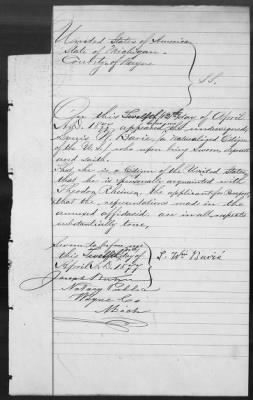 United States of America
State of Michigan
County of Wayne
S.S.
On this Twelfth 12th day of April
A.D. 1877 appeared the undersigned
Louis W. a naturalized Citizen
of the U.S., who upon being sworn, deposes
and saith.
That he is a Citizen of the United States
that he is personally acquainted with
Theodor applicant for Passport
that the representations made in the
annexed affidavit are in all respects
substantially true,
Sworn to before me
this Twelfth day of
April A.D. 1877
L. Wm
Joseph
Notary Public
Wayne Co
Mich